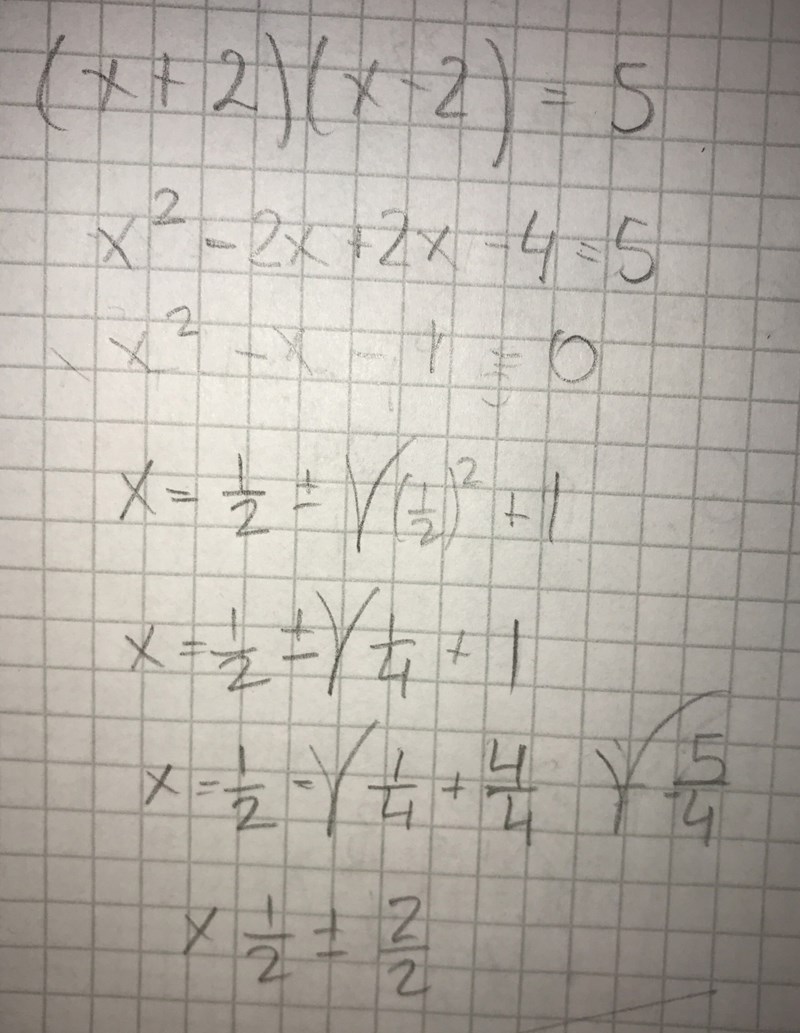 (x+2)(x-2) = 5
x² - 2x + 2x - 4 = 5
x² - x - 1 = 0
x = 1/2 ± √(1/2)² + 1
x = 1/2 ± √1/4 + 1
x = 1/2 - √1/4 + 4/4 √5/4
x 1/2 ± 2/2